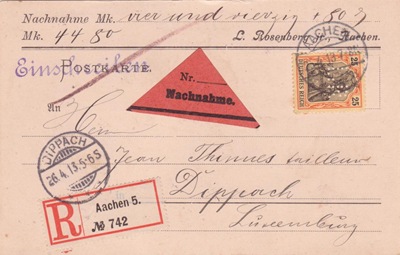 Nachnahme Mk. vier und vierzig + 80 ₰
Mk. 44 80 L. Rosenberg Aachen.
AACHEN
Einschreiben
POSTKARTE.
25 25
DEUTSCHES REICH
Nr.
Nachnahme.
An
Herrn
Jean Thinnes tailleur
DIPPACH
26.4.13.5-6S
Dippach
Luxemburg
R
Aachen 5.
№ 742